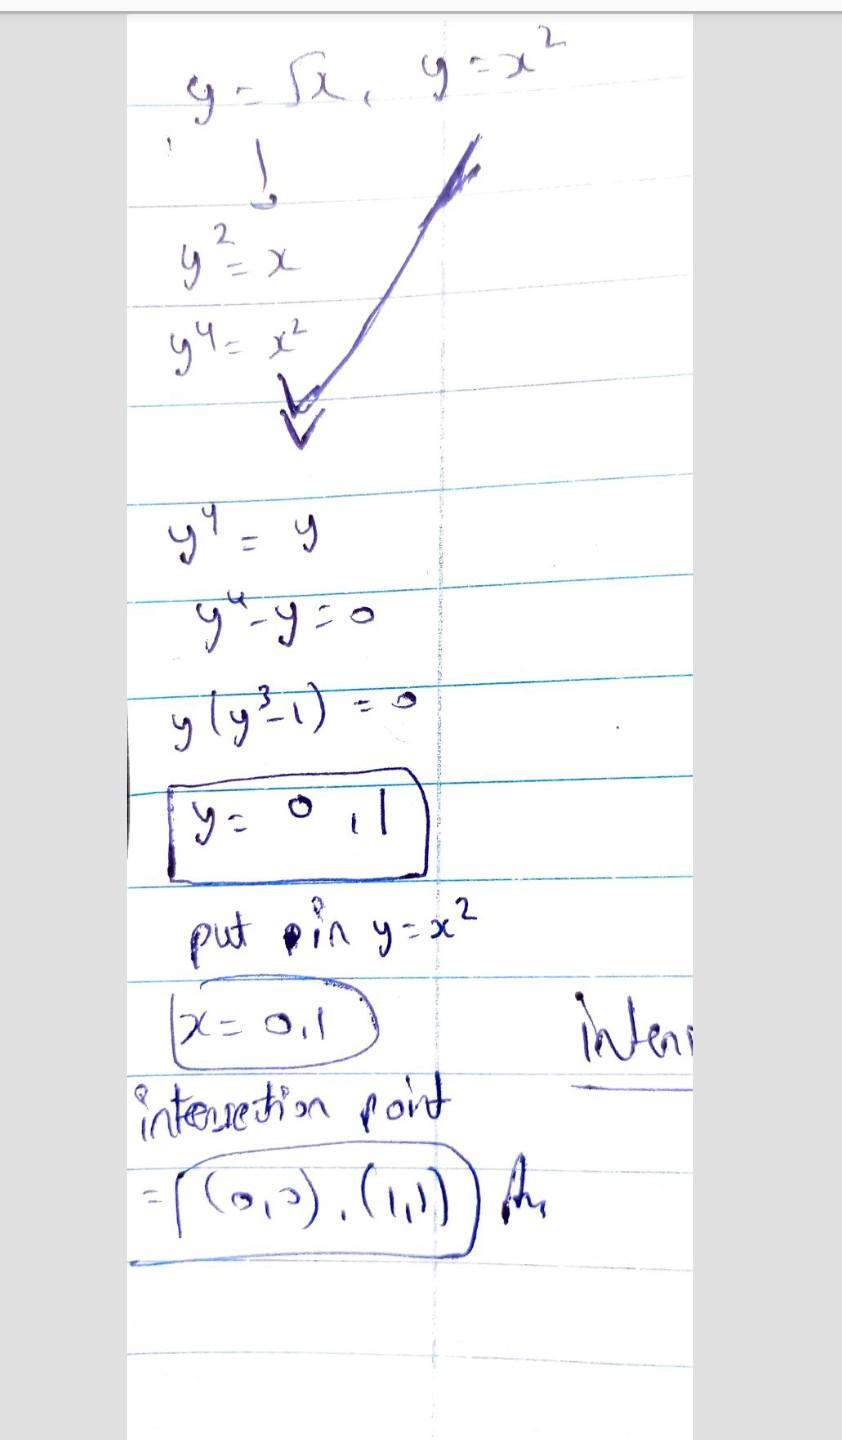 y = √x, y = x²
y² = x
y⁴ = x²
y⁴ = y
y⁴ - y = 0
y(y³-1) = 0
y = 0, 1
put in y = x²
x = 0,1
inter
intersection point
= (0,0), (1,1) An